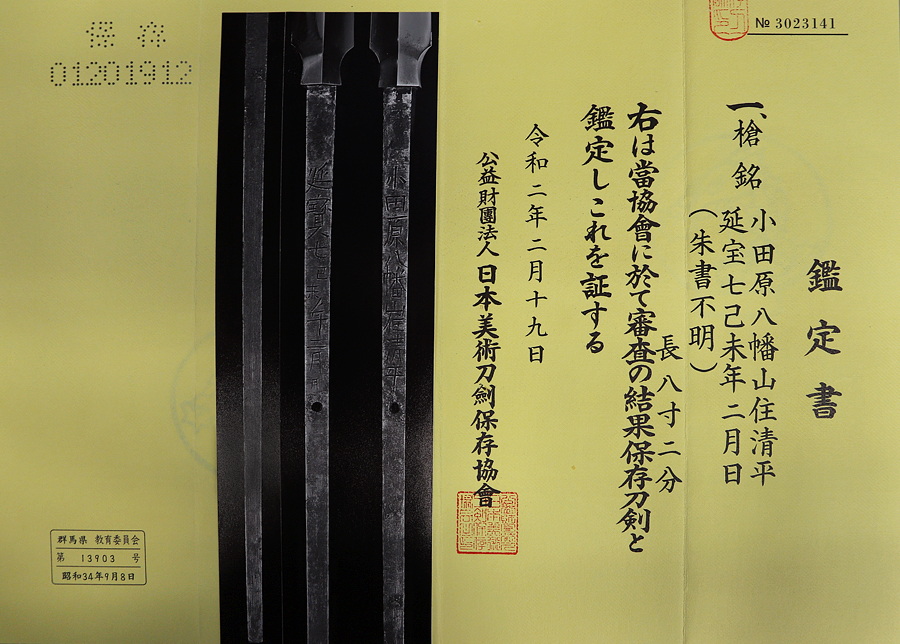 № 3023141
鑑定書
一、槍 銘 小田原八幡山住清平
延宝七己未年二月日
(朱書不明)
長 八寸二分
右は當協會に於て審査の結果保存刀剣と
鑑定しこれを証する
令和二年二月十九日
公益財團法人日本美術刀劍保存協會
小田原八幡山住清平
保存
01201912
群馬県 教育委員会
第 13903 号
昭和34年9月8日